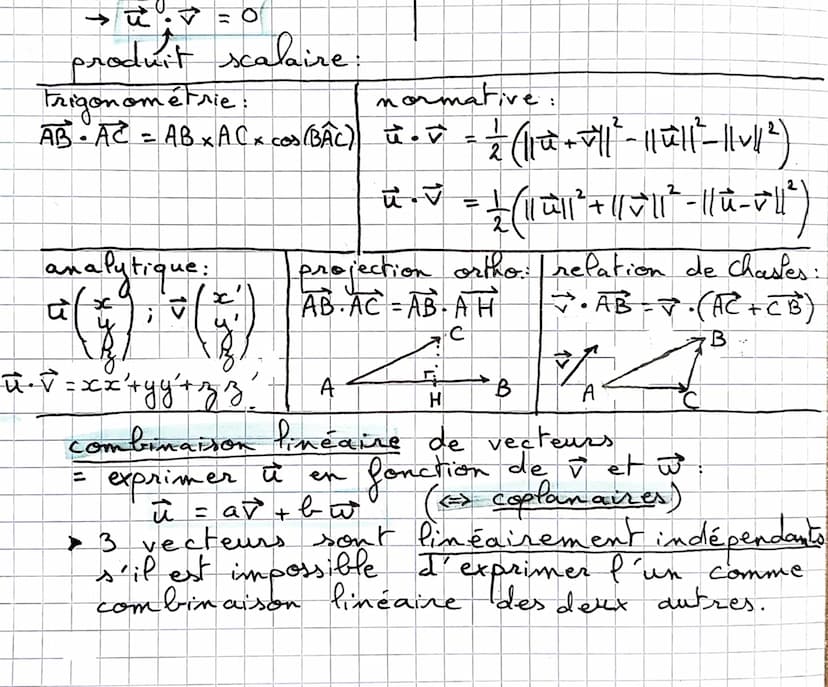 → u⃗ · v⃗ = 0
produit scalaire :
trigonométrie :
AB⃗ · AC⃗ = AB × AC × cos(BÂC)
normative :
u⃗ · v⃗ = 1/2 (||u⃗ + v⃗||² - ||u⃗||² - ||v||²)
u⃗ · v⃗ = 1/2 (||u⃗||² + ||v⃗||² - ||u⃗ - v⃗||²)
analytique :
u⃗ (x y z) ; v⃗ (x' y' z')
u⃗ · v⃗ = xx' + yy' + zz'
projection ortho :
AB⃗ · AC⃗ = AB⃗ · AH⃗
C
A
H
B
relation de Chasles :
v⃗ · AB⃗ = v⃗ · (AC⃗ + CB⃗)
B
v⃗
A
C
combinaison linéaire de vecteurs
= exprimer u⃗ en fonction de v⃗ et w⃗ :
u⃗ = av⃗ + bw⃗ (⇔ coplanaires)
➤ 3 vecteurs sont linéairement indépendants
s'il est impossible d'exprimer l'un comme
combinaison linéaire des deux autres.